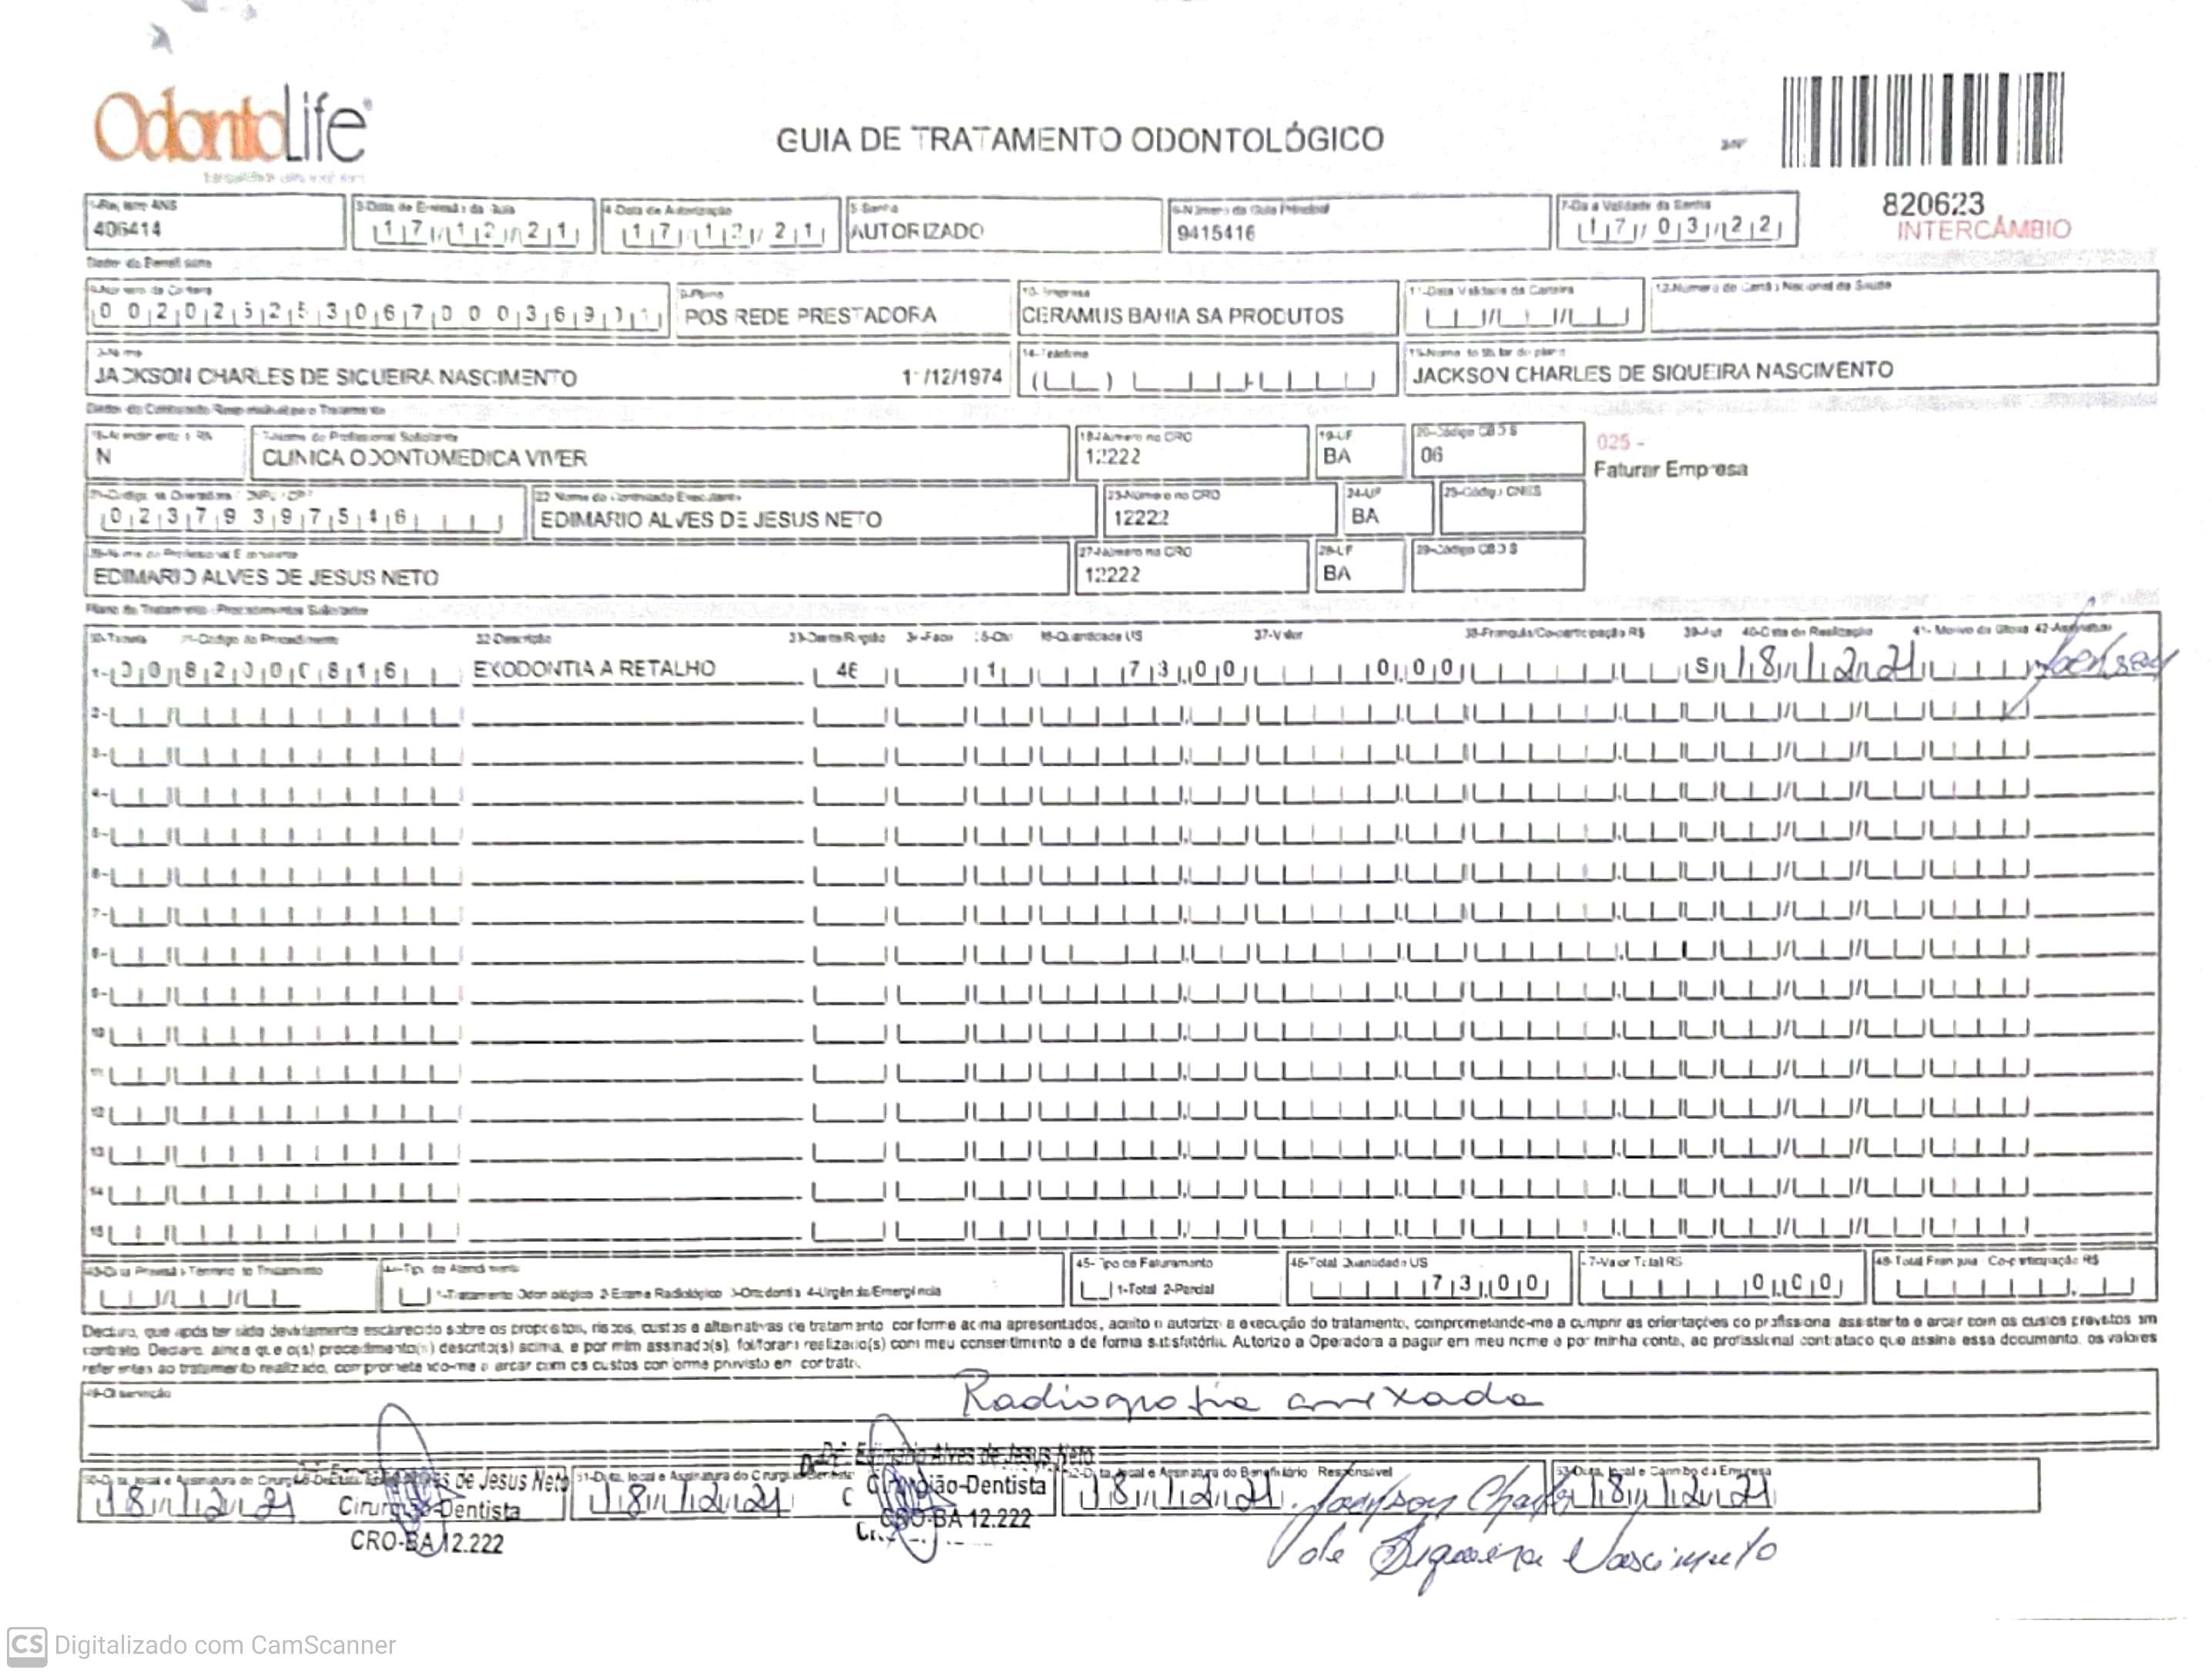 OdontoLife®
GUIA DE TRATAMENTO ODONTOLÓGICO
820623
INTERCÂMBIO
1-Registro ANS
406414
3-Data de Emissão da Guia
17/12/21
4-Data de Autorização
17/12/21
5-Senha
AUTORIZADO
6-Número da Guia Principal
9415416
7-Data Validade da Senha
17/03/22
Dados do Beneficiário
8-Número da Carteira
9-Plano
POS REDE PRESTADORA
10-Empresa
CERAMUS BAHIA SA PRODUTOS
11-Data Validade da Carteira
12-Número do Cartão Nacional de Saúde
13-Nome
JACKSON CHARLES DE SIQUEIRA NASCIMENTO
/12/1974
14-Telefone
15-Nome do titular do plano
JACKSON CHARLES DE SIQUEIRA NASCIMENTO
Dados do Contratado Responsável pelo Tratamento
16-Atendimento a RN
N
17-Nome do Profissional Solicitante
CLINICA ODONTOMEDICA VIVER
18-Número no CRO
12222
19-UF
BA
20-Código CBO S
06
025 -
Faturar Empresa
21-Código na Operadora / CNPJ / CPF
02379397516
22-Nome do Contratado Executante
EDIMARIO ALVES DE JESUS NETO
23-Número no CRO
12222
24-UF
BA
25-Código CNES
26-Nome do Profissional Executante
EDIMARIO ALVES DE JESUS NETO
27-Número no CRO
12222
28-UF
BA
29-Código CBO S
Plano de Tratamento - Procedimentos Solicitados
30-Tabela 31-Código do Procedimento 32-Descrição 33-Dente/Região 34-Face 35-Qtd 36-Quantidade US 37-Valor 38-Franquia/Co-participação R$ 39-Aut 40-Data de Realização 41- Motivo da Glosa 42-Assinatura
1- 00 82000816 EXODONTIA A RETALHO 46 1 73,00 0,00 S 18/12/21
2-
3-
4-
5-
6-
7-
8-
9-
10
11
12
13
14
15
43-Data Prevista Término do Tratamento
44-Tipo de Atendimento
1-Tratamento Odontológico 2-Exame Radiológico 3-Ortodontia 4-Urgência/Emergência
45- Tipo de Faturamento
1-Total 2-Parcial
46-Total Quantidade US
73,00
47-Valor Total R$
0,00
48-Total Franquia Co-participação R$
Declaro, que após ter sido devidamente esclarecido sobre os propósitos, riscos, custos e alternativas de tratamento conforme acima apresentados, aceito e autorizo a execução do tratamento, comprometendo-me a cumprir as orientações do profissional assistente e arcar com os custos previstos em
contrato. Declaro ainda que o(s) procedimento(s) descrito(s) acima, e por mim assinado(s), foi/foram realizado(s) com meu consentimento e de forma satisfatória. Autorizo a Operadora a pagar em meu nome e por minha conta, ao profissional contratado que assina esse documento, os valores
referentes ao tratamento realizado, comprometendo-me a arcar com os custos conforme previsto em contrato.
49-Observação
Radiografia anexada
50-Data, local e Assinatura do Cirurgião-Dentista
18/12/21
de Jesus Neto
Cirurgião-Dentista
CRO-BA 12.222
51-Data, local e Assinatura do Cirurgião-Dentista
18/12/21
Dr. Edimario Alves de Jesus Neto
Cirurgião-Dentista
CRO-BA 12.222
52-Data, local e Assinatura do Beneficiário Responsável
18/12/21. Jackson Charles
de Siqueira Nascimento
53-Data, local e Carimbo da Empresa
18/12/21
CS Digitalizado com CamScanner